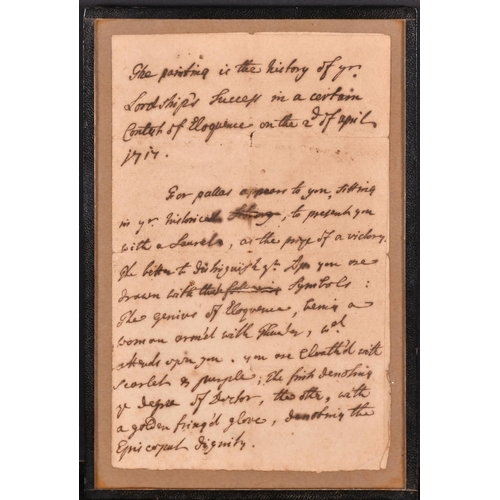 The painting is the history of yr.
Lordship's Success in a certain
Contest of Eloquence on the 2d of April
1717.
For pallas appears to you, sitting
in yr. historical, to present you
with a Laurel, as the prize of a victory.
The better to distinguish yr. Lp. you are
drawn with Symbols:
The genius of Eloquence, being a
woman arm'd with Thunder, wch
attends upon you. you are cloath'd with
scarlet & purple; the first denoting
ye degree of Doctor, the other, with
a golden fring'd glove, denoting the
Episcopal dignity.